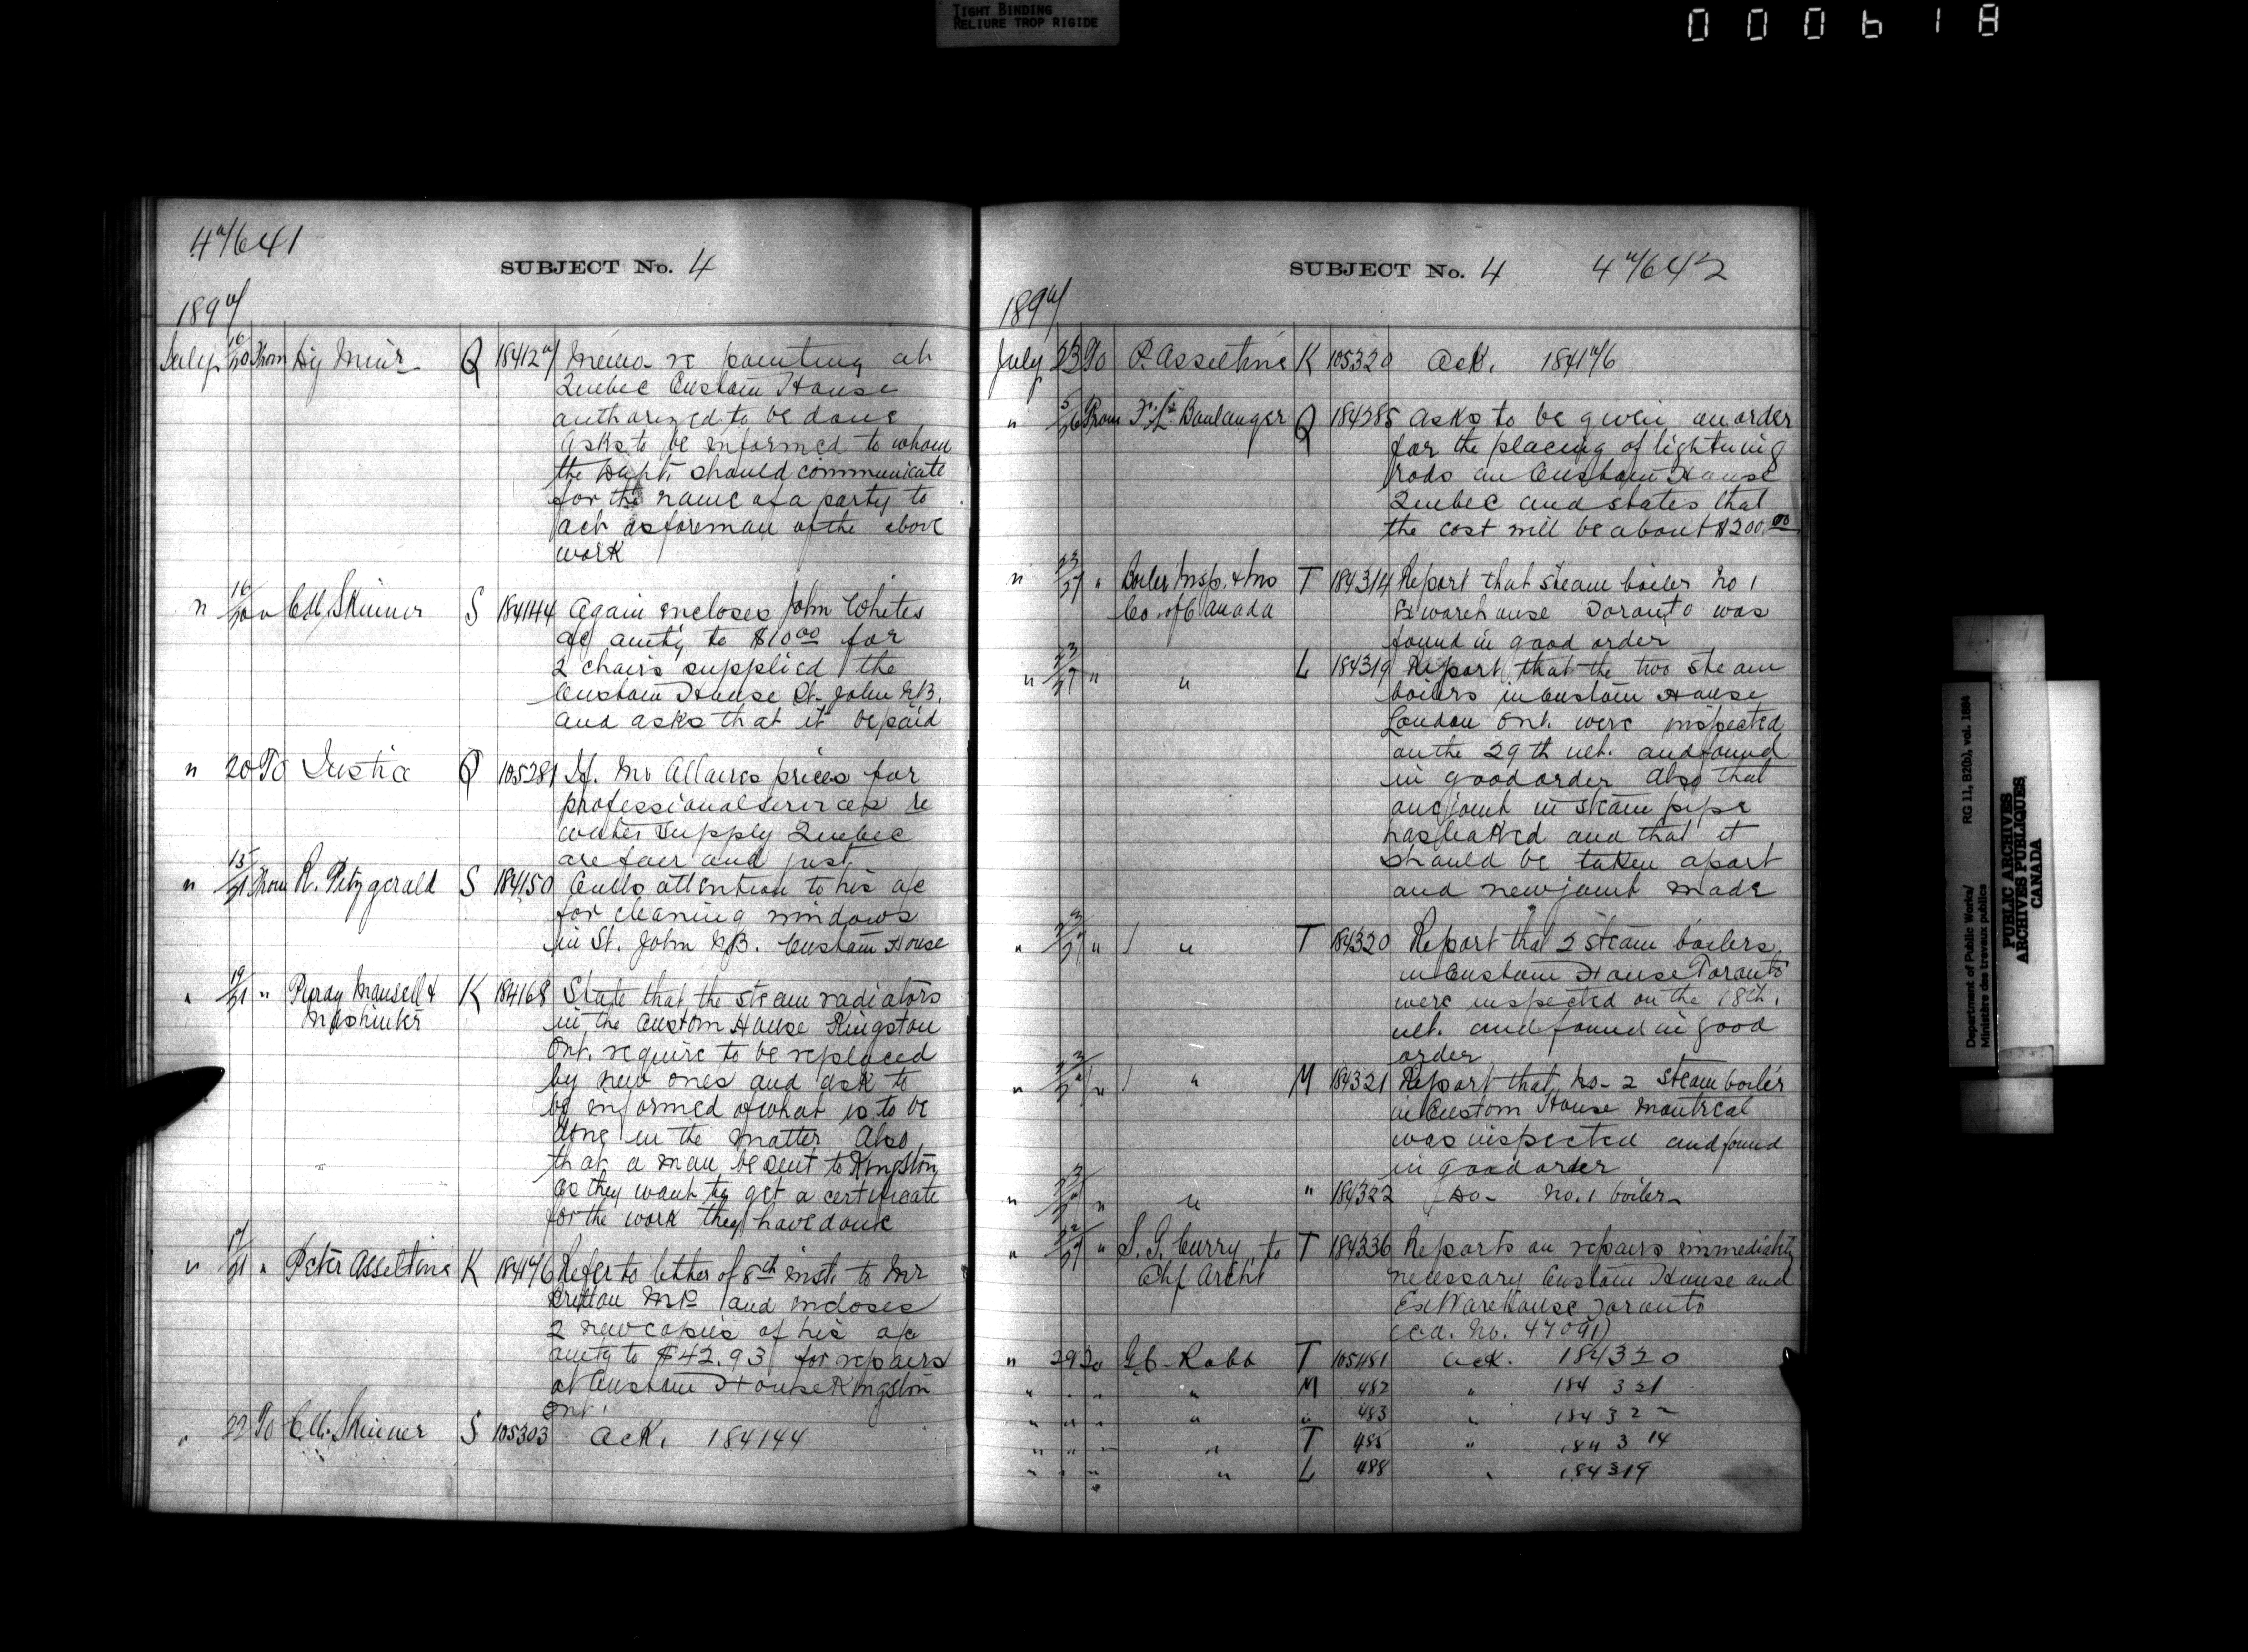 TIGHT BINDING
RELIURE TROP RIGIDE
000618
47641
SUBJECT No. 4
1897
July 16/20 From Hy Muir Q 184127 Memo re painting at
Quebec Custom House
authorized to be done
asks to be informed to whom
the Dept. should communicate
for the name of a party to
act as foreman of the above
work
" 16/20 " C.M. Skinner S 184144 Again encloses John Whites
a/c amtg to $10.00 for
2 chairs supplied the
Custom House St. John N.B.
and asks that it be paid
" 20 To Justice Q 105281 If Mr Allaires prices for
professional services re
water supply Quebec
are fair and just
" 15/21 From R. Fitzgerald S 184150 Calls attention to his a/c
for cleaning windows
in St. John N.B. Custom House
" 19/21 " Purdy Mansell & K 184168 State that the steam radiators
Mashinter in the Custom House Kingston
Ont. require to be replaced
by new ones and ask to
be informed of what is to be
done in the matter Also
that a man be sent to Kingston
as they want to get a certificate
for the work they have done
" 17/21 " Peter Asseltine K 184176 Refer to letter of 8th inst. to Mr
Britton M.P. and incloses
2 new copies of his a/c
amtg to $42.93 for repairs
at Custom House Kingston
Ont.
" 22 To C.M. Skinner S 105303 Ack. 184144
SUBJECT No. 4 47642
1897
July 23 To P. Asseltine K 105320 Ack. 184176
" 5/26 From F. L. Boulanger Q 184285 Asks to be given an order
for the placing of lightning
rods on Custom House
Quebec and states that
the cost will be about $200.00
" 23/27 " Boiler Insp. & Ins T 184314 Report that steam boiler No 1
Co. of Canada Ex warehouse Toronto was
found in good order
" 23/27 " " L 184319 Report that the two steam
boilers in Custom House
London Ont. were inspected
on the 29th ult. and found
in good order Also that
one joint in steam pipe
has leaked and that it
should be taken apart
and new joint made
" 23/27 " " T 184320 Report that 2 steam boilers
in Custom House Toronto
were inspected on the 18th.
ult. and found in good
order
" 23/27 " " M 184321 Report that No- 2 steam boiler
in Custom House Montreal
was inspected and found
in good order
" 23/27 " " " 184322 Do- No. 1 boiler
" 22/27 " S. G. Curry to T 184336 Reports on repairs immediately
Chf Archt necessary Custom House and
Ex Warehouse Toronto
(c.a. No. 47091)
" 29 To G.C. Robb T 105481 Ack. 184320
" " " " M 482 " 184321
" " " " " 483 " 184322
" " " " T 485 " 184314
" " " " L 488 " 184319
Department of Public Works/
Ministère des travaux publics
RG 11, B2(b), vol. 1884
PUBLIC ARCHIVES
ARCHIVES PUBLIQUES
CANADA